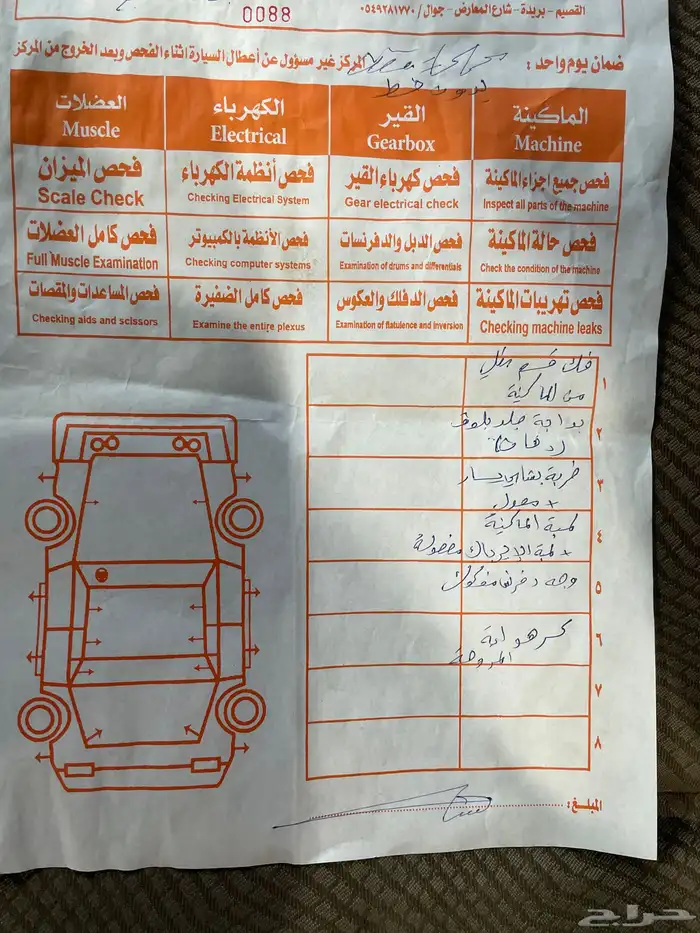 القصيم - بريدة - شارع المعارض - جوال / ٠٥٤٩٢٨١٧٧٠
0088
ضمان يوم واحد : المركز غير مسؤول عن أعطال السيارة اثناء الفحص وبعد الخروج من المركز
بدون شرط
الماكينة القير الكهرباء العضلات
Machine Gearbox Electrical Muscle
فحص جميع اجزاء الماكينة فحص كهرباء القير فحص أنظمة الكهرباء فحص الميزان
Inspect all parts of the machine Gear electrical check Checking Electrical System Scale Check
فحص حالة الماكينة فحص الدبل والدفرنسات فحص الأنظمة بالكمبيوتر فحص كامل العضلات
Check the condition of the machine Examination of drums and differentials Checking computer systems Full Muscle Examination
فحص تهريبات الماكينة فحص الدفلك والعكوس فحص كامل الضفيرة فحص المساعدات والمقصات
Checking machine leaks Examination of flatulence and inversion Examine the entire plexus Checking aids and scissors
١ فك قسم
من الماكينة
٢ بواجة جلد بلوف
٣ ضربة بشاصي يسار
+
٤ لمبة الماكينة
+ لمبة الايرباك مفصولة
٥ وجه دفرنس مفكوك
٦ كسر هواية
المروحة
٧
٨
المبلغ :
حراج